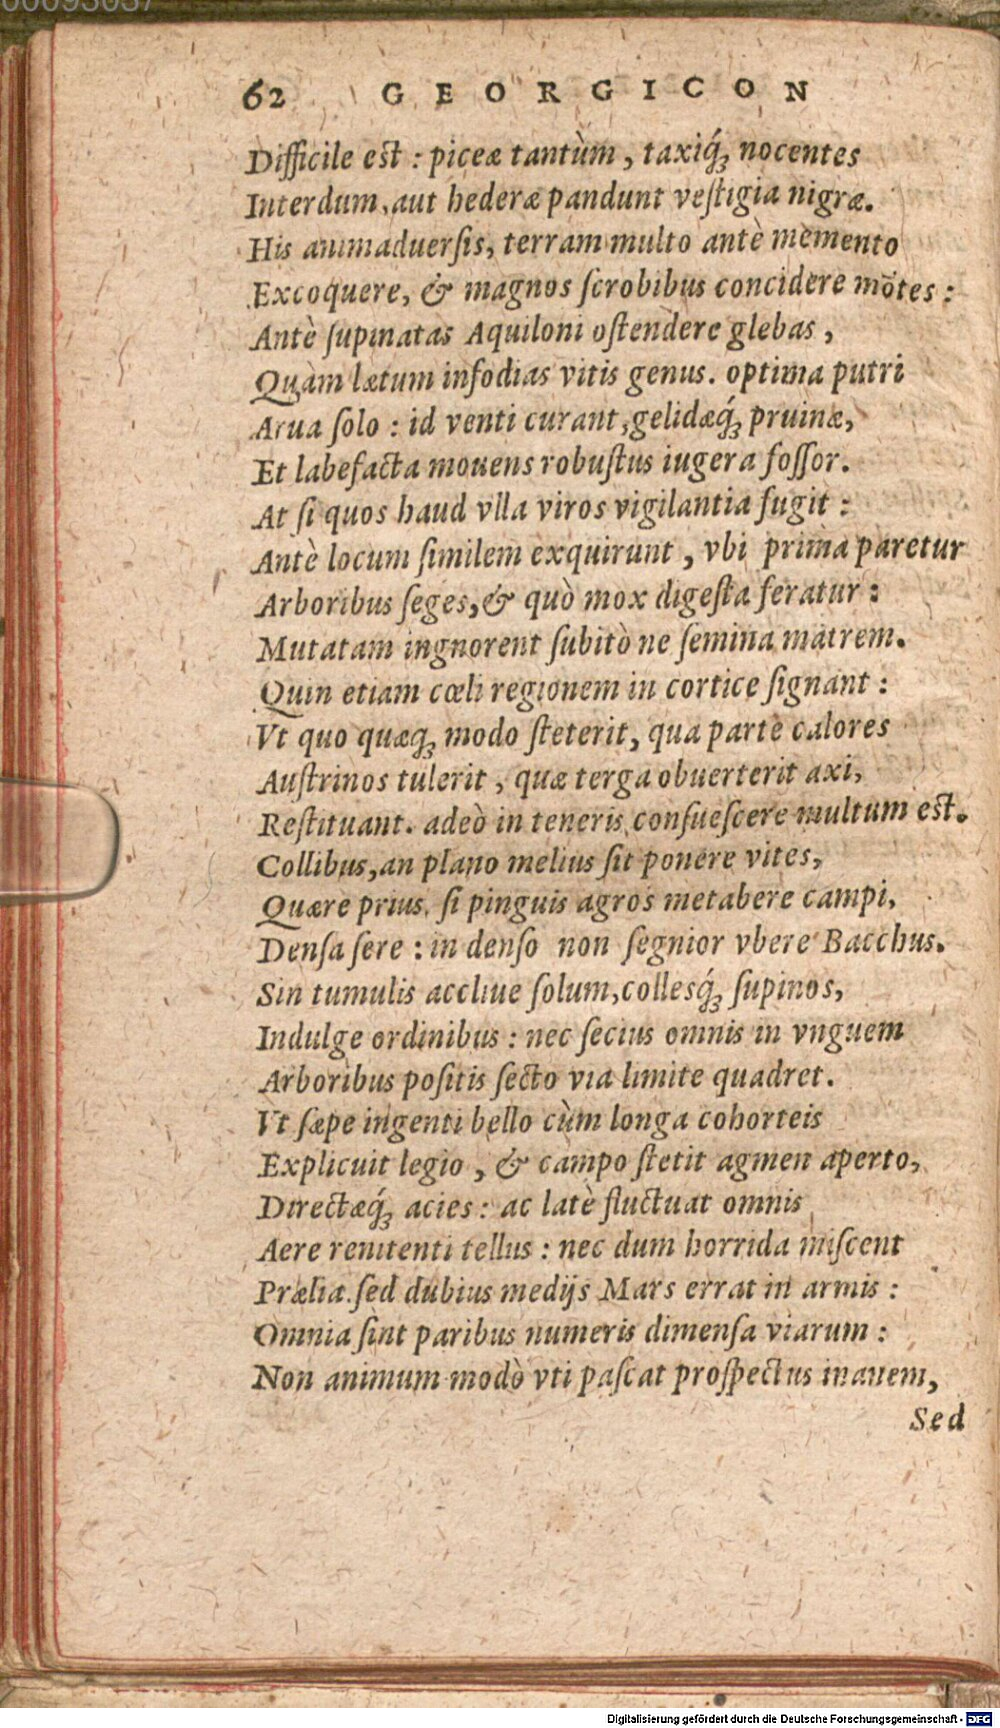 00093037
62 GEORGICON
Difficile eſt : piceæ tantùm , taxiq́; nocentes
Interdum, aut hederæ pandunt veſtigia nigræ.
His animaduerſis, terram multo antè memento
Excoquere, & magnos ſcrobibus concidere mōtes :
Antè ſupinatas Aquiloni oſtendere glebas ,
Quàm lætum infodias vitis genus. optima putri
Arua ſolo : id venti curant, gelidæq́; pruinæ,
Et labefacta mouens robuſtus iugera foſſor.
At ſi quos haud vlla viros vigilantia fugit :
Antè locum ſimilem exquirunt , vbi prima paretur
Arboribus ſeges, & quò mox digeſta feratur :
Mutatam ingnorent ſubitò ne ſemina matrem.
Quin etiam cœli regionem in cortice ſignant :
Vt quo quæq; modo ſteterit, qua parte calores
Auſtrinos tulerit , quæ terga obuerterit axi,
Reſtituant. adeò in teneris conſueſcere multum eſt.
Collibus, an plano melius ſit ponere vites,
Quære prius. ſi pinguis agros metabere campi,
Denſa ſere : in denſo non ſegnior vbere Bacchus.
Sin tumulis accliue ſolum, collesq́; ſupinos,
Indulge ordinibus : nec ſecius omnis in vnguem
Arboribus poſitis ſecto via limite quadret.
Vt ſæpe ingenti bello cùm longa cohorteis
Explicuit legio , & campo ſtetit agmen aperto,
Directæq́; acies : ac latè fluctuat omnis
Aere renitenti tellus : nec dum horrida miſcent
Prælia. ſed dubius medijs Mars errat in armis :
Omnia ſint paribus numeris dimenſa viarum :
Non animum modò vti paſcat proſpectus inanem,
Sed
Digitalisierung gefördert durch die Deutsche Forschungsgemeinschaft - DFG